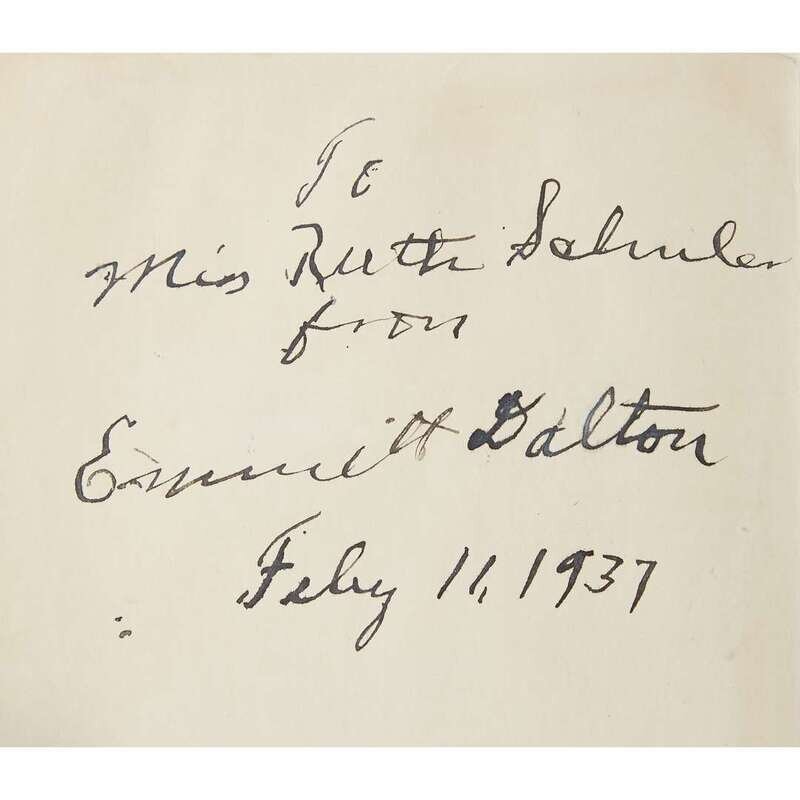 To
Miss Ruth Schuler
from
Emmett Dalton
Feby 11, 1937